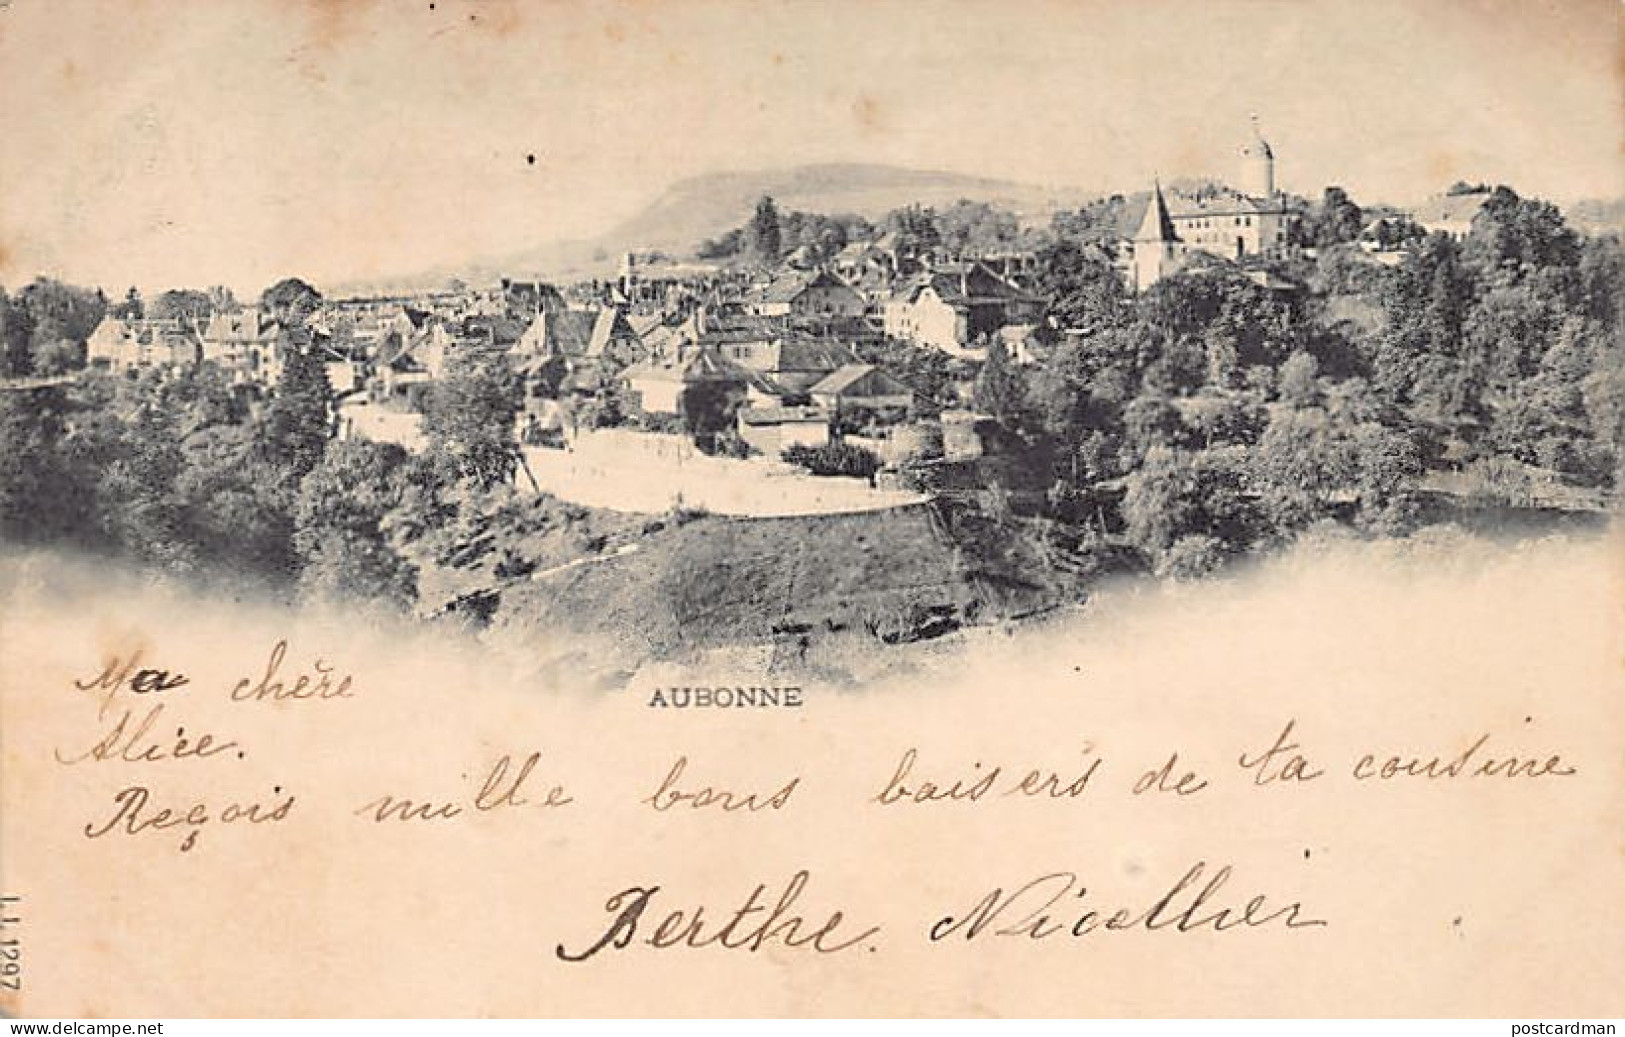 AUBONNE
Ma chère
Alice.
Reçois mille bons baisers de ta cousine
Berthe. Nicollier
1297
www.delcampe.net
postcardman